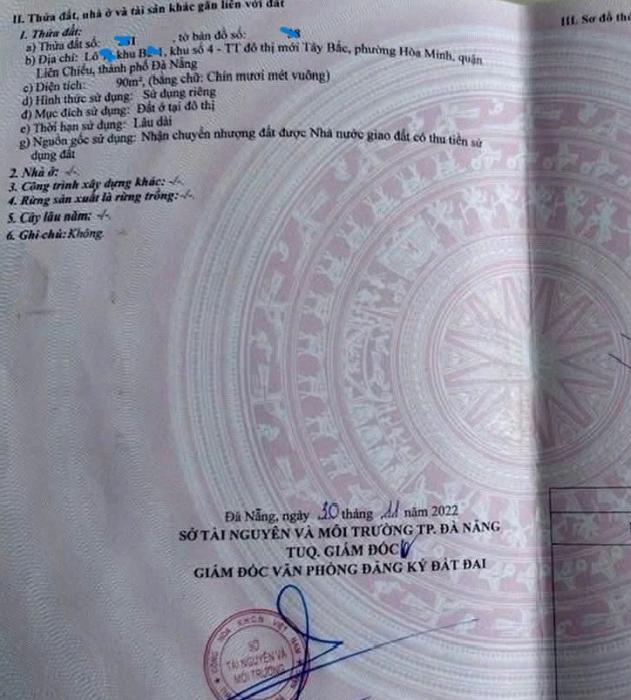 II. Thửa đất, nhà ở và tài sản khác gắn liền với đất
III. Sơ đồ
1. Thửa đất:
a) Thửa đất số: 1 , tờ bản đồ số: 8
b) Địa chỉ: Lô khu B 1, khu số 4 - TT đô thị mới Tây Bắc, phường Hòa Minh, quận
Liên Chiểu, thành phố Đà Nẵng
c) Diện tích: 90m², (bằng chữ: Chín mươi mét vuông)
d) Hình thức sử dụng: Sử dụng riêng
đ) Mục đích sử dụng: Đất ở tại đô thị
e) Thời hạn sử dụng: Lâu dài
g) Nguồn gốc sử dụng: Nhận chuyển nhượng đất được Nhà nước giao đất có thu tiền sử
dụng đất
2. Nhà ở: -/-.
3. Công trình xây dựng khác: -/-.
4. Rừng sản xuất là rừng trồng: -/-.
5. Cây lâu năm: -/-.
6. Ghi chú: Không.
Đà Nẵng, ngày 30 tháng 11 năm 2022
SỞ TÀI NGUYÊN VÀ MÔI TRƯỜNG TP. ĐÀ NẴNG
TUQ. GIÁM ĐỐC
GIÁM ĐỐC VĂN PHÒNG ĐĂNG KÝ ĐẤT ĐAI
CỘNG HÒA X.H.C.N VIỆT NAM
SỞ
TÀI NGUYÊN VÀ
MÔI TRƯỜNG